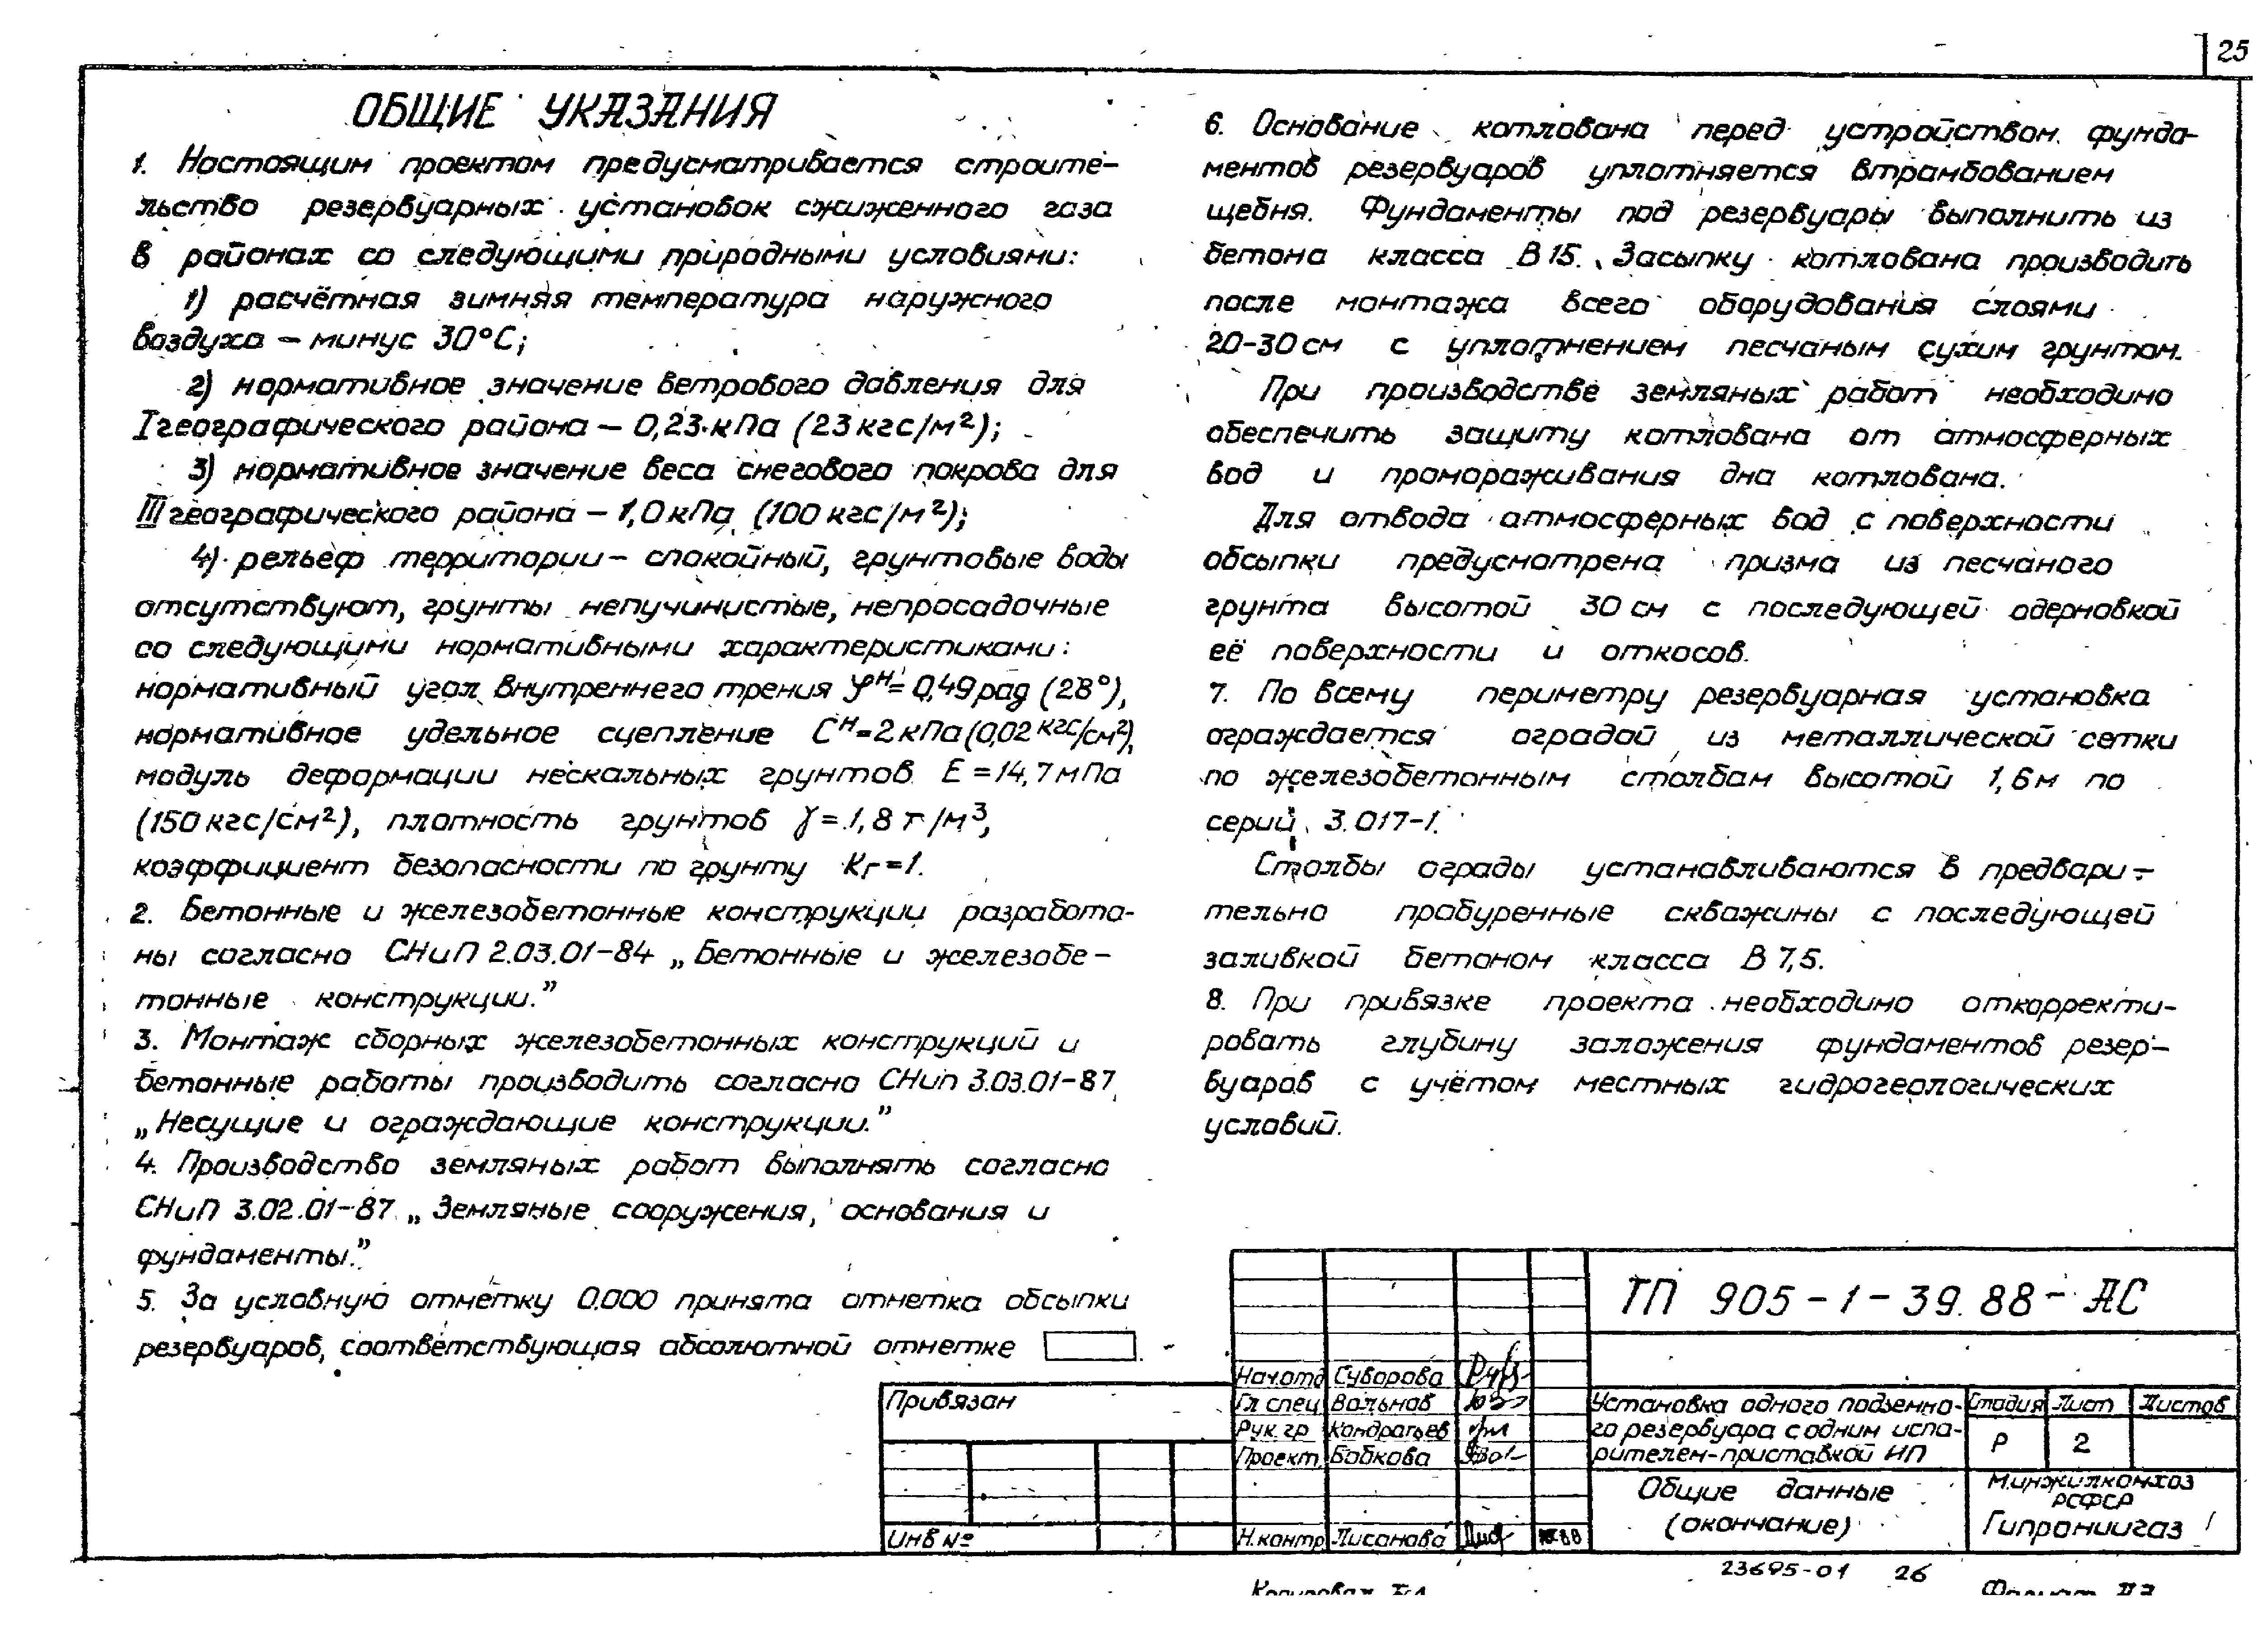 25
ОБЩИЕ УКАЗАНИЯ
1. Настоящим проектом предусматривается строите-
льство резервуарных установок сжиженного газа
в районах со следующими природными условиями:
1) расчётная зимняя температура наружного
воздуха – минус 30°С;
2) нормативное значение ветрового давления для
I географического района – 0,23 кПа (23 кгс/м²);
3) нормативное значение веса снегового покрова для
III географического района – 1,0 кПа (100 кгс/м²);
4) рельеф территории – спокойный, грунтовые воды
отсутствуют, грунты непучинистые, непросадочные
со следующими нормативными характеристиками:
нормативный угол внутреннего трения φᴴ = 0,49 рад (28°),
нормативное удельное сцепление Cᴴ = 2 кПа (0,02 кгс/см²),
модуль деформации нескальных грунтов E = 14,7 мПа
(150 кгс/см²), плотность грунтов γ = 1,8 т/м³,
коэффициент безопасности по грунту Кг = 1.
2. Бетонные и железобетонные конструкции разработа-
ны согласно СНиП 2.03.01-84 „Бетонные и железобе-
тонные конструкции.”
3. Монтаж сборных железобетонных конструкций и
бетонные работы производить согласно СНиП 3.03.01-87
„Несущие и ограждающие конструкции.”
4. Производство земляных работ выполнять согласно
СНиП 3.02.01-87 „Земляные сооружения, основания и
фундаменты.”
5. За условную отметку 0.000 принята отметка обсыпки
резервуаров, соответствующая абсолютной отметке
6. Основание котлована перед устройством фунда-
ментов резервуаров уплотняется втрамбованием
щебня. Фундаменты под резервуары выполнить из
бетона класса В 15. Засыпку котлована производить
после монтажа всего оборудования слоями
20-30 см с уплотнением песчаным сухим грунтом.
При производстве земляных работ необходимо
обеспечить защиту котлована от атмосферных
вод и промораживания дна котлована.
Для отвода атмосферных вод с поверхности
обсыпки предусмотрена призма из песчаного
грунта высотой 30 см с последующей одерновкой
её поверхности и откосов.
7. По всему периметру резервуарная установка
ограждается оградой из металлической сетки
по железобетонным столбам высотой 1,6 м по
серии 3.017-1.
Столбы ограды устанавливаются в предвари-
тельно пробуренные скважины с последующей
заливкой бетоном класса В 7,5.
8. При привязке проекта необходимо откорректи-
ровать глубину заложения фундаментов резер-
вуаров с учётом местных гидрогеологических
условий.
ТП 905-1-39.88-АС
Нач.отд Суворова
Гл спец Вольнов
Рук. гр Кондратьев
Проект. Бобкова
Н.контр Лисанова 88
Привязан
Инв №
Установка одного подземно-
го резервуара с одним испа-
рителем-приставкой ИП
Стадия Лист Листов
Р 2
Общие данные
(окончание)
Минжилкомхоз
РСФСР
Гипрониигаз
23695-01 26
Копировал
Формат